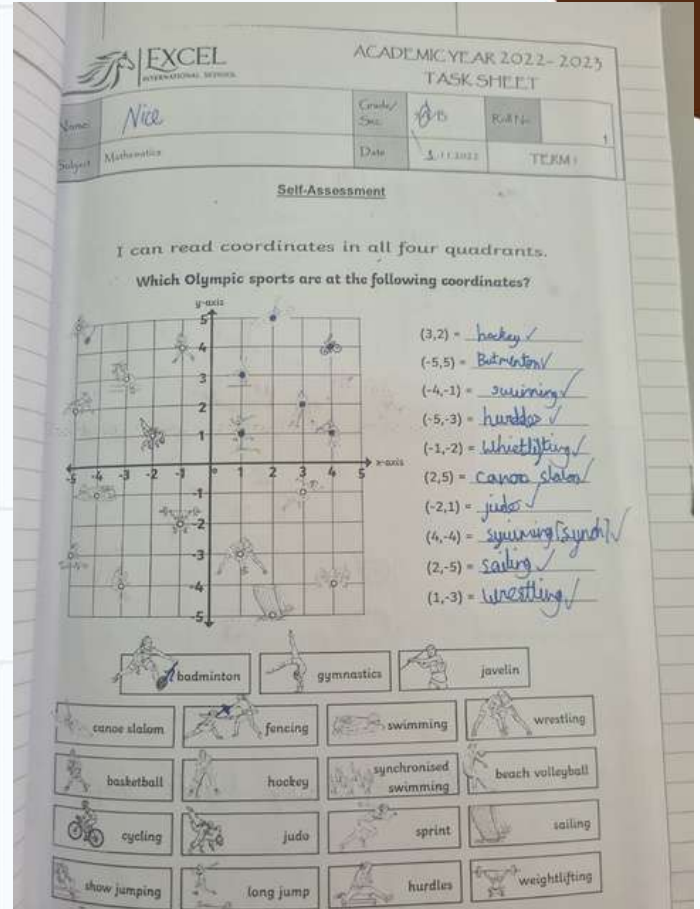 EXCEL
INTERNATIONAL SCHOOL
ACADEMIC YEAR 2022-2023
TASK SHEET
Name: Nice
Grade/
Sec B
Roll No
1
Subject Mathematics
Date .11.2022
TERM 1
Self-Assessment
I can read coordinates in all four quadrants.
Which Olympic sports are at the following coordinates?
y-axis
5
4
3
2
1
x-axis
-5 -4 -3 -2 -1 0 1 2 3 4 5
-1
-2
-3
-4
-5
(3,2) = hockey ✓
(-5,5) = Butminton ✓
(-4,-1) = swiming ✓
(-5,-3) = ✓
(-1,-2) = ✓
(2,5) = canoo slalom ✓
(-2,1) = judo ✓
(4,-4) = [synch] ✓
(2,-5) = sailing ✓
(1,-3) = wrestling ✓
badminton
gymnastics
javelin
canoe slalom
fencing
swimming
wrestling
basketball
hockey
synchronised
swimming
beach volleyball
cycling
judo
sprint
sailing
show jumping
long jump
hurdles
weightlifting